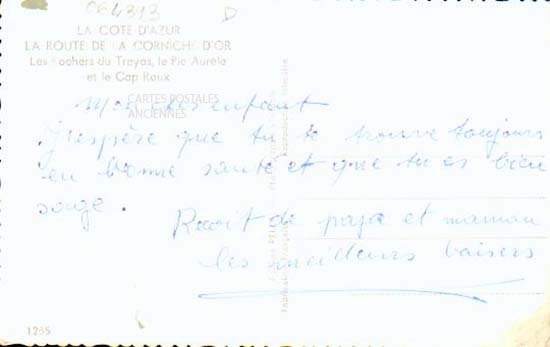 064313 D
LA COTE D'AZUR
LA ROUTE DE LA CORNICHE D'OR
Les Rochers du Trayas, le Pic Aurèle
et le Cap Roux
CARTES POSTALES
ANCIENNES
Mon cher enfant
J'espère que tu te trouve toujours
en bonne santé et que tu es bien
sage.
Reçoit de papa et maman
les meilleurs baisers
1265